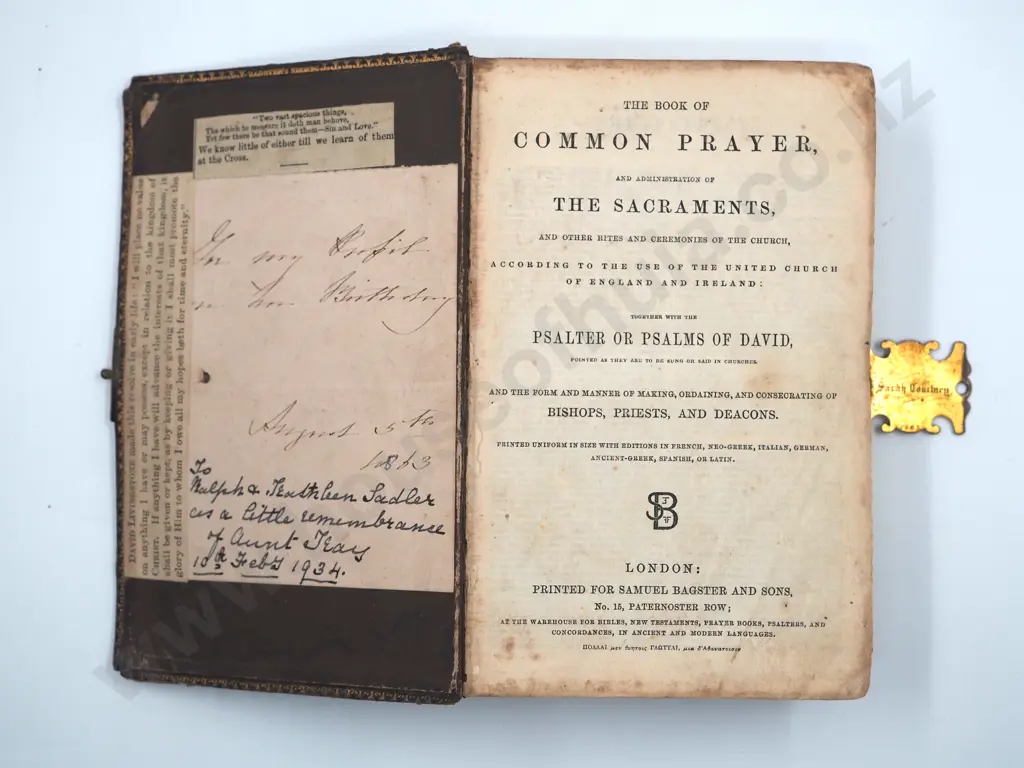 "Two vast spacious things,
The which to measure it doth man behove,
Yet few there be that sound them—Sin and Love."
We know little of either till we learn of them
at the Cross.
DAVID LIVINGSTONE made this resolve in early life: "I will place no value
on anything I have or may possess, except in relation to the kingdom of
CHRIST. If anything I have will advance the interests of that kingdom, it
shall be given or kept, as by keeping or giving it I shall most promote the
glory of Him to whom I owe all my hopes both for time and eternity."
my
Birthday
August 5th
1863
To
Ralph & Kathleen Sadler
as a little remembrance
of Aunt Kay
10th Feby 1934.
THE BOOK OF
COMMON PRAYER,
AND ADMINISTRATION OF
THE SACRAMENTS,
AND OTHER RITES AND CEREMONIES OF THE CHURCH,
ACCORDING TO THE USE OF THE UNITED CHURCH
OF ENGLAND AND IRELAND:
TOGETHER WITH THE
PSALTER OR PSALMS OF DAVID,
POINTED AS THEY ARE TO BE SUNG OR SAID IN CHURCHES.
AND THE FORM AND MANNER OF MAKING, ORDAINING, AND CONSECRATING OF
BISHOPS, PRIESTS, AND DEACONS.
PRINTED UNIFORM IN SIZE WITH EDITIONS IN FRENCH, NEO-GREEK, ITALIAN, GERMAN,
ANCIENT-GREEK, SPANISH, OR LATIN.
LONDON:
PRINTED FOR SAMUEL BAGSTER AND SONS,
No. 15, PATERNOSTER ROW;
AT THE WAREHOUSE FOR BIBLES, NEW TESTAMENTS, PRAYER BOOKS, PSALTERS, AND
CONCORDANCES, IN ANCIENT AND MODERN LANGUAGES.
ΠΟΛΛΑΙ μεν θνητοις ΓΛΩΤΤΑΙ, μια δ'Αθανατοισιν
Sarah Courtney